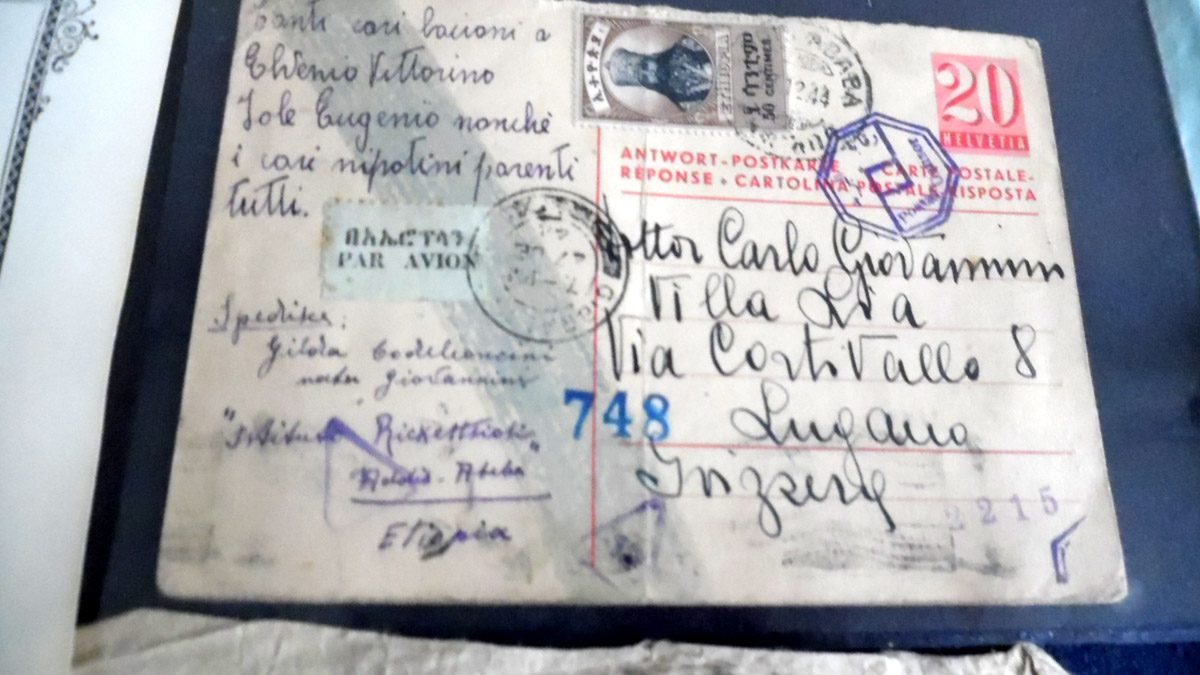 Tanti cari bacioni a
Vittorino
Jole Eugenio nonchè
i cari nipotini parenti
tutti.
በአኤሮፕላን
PAR AVION
Spedisce:
Gilda
nata Giovannini
"Istituto
Addis-Abeba
Etiopia
ኢትዮጵያ
ETHIOPIA
50 CENTIMES
ABABA
20
HELVETIA
ANTWORT-POSTKARTE CARTE POSTALE-
RÉPONSE + CARTOLINA POSTALE RISPOSTA
Dottor Carlo Giovannini
Villa Lia
Via Cortivallo 8
748
Lugano
Svizzera
2215